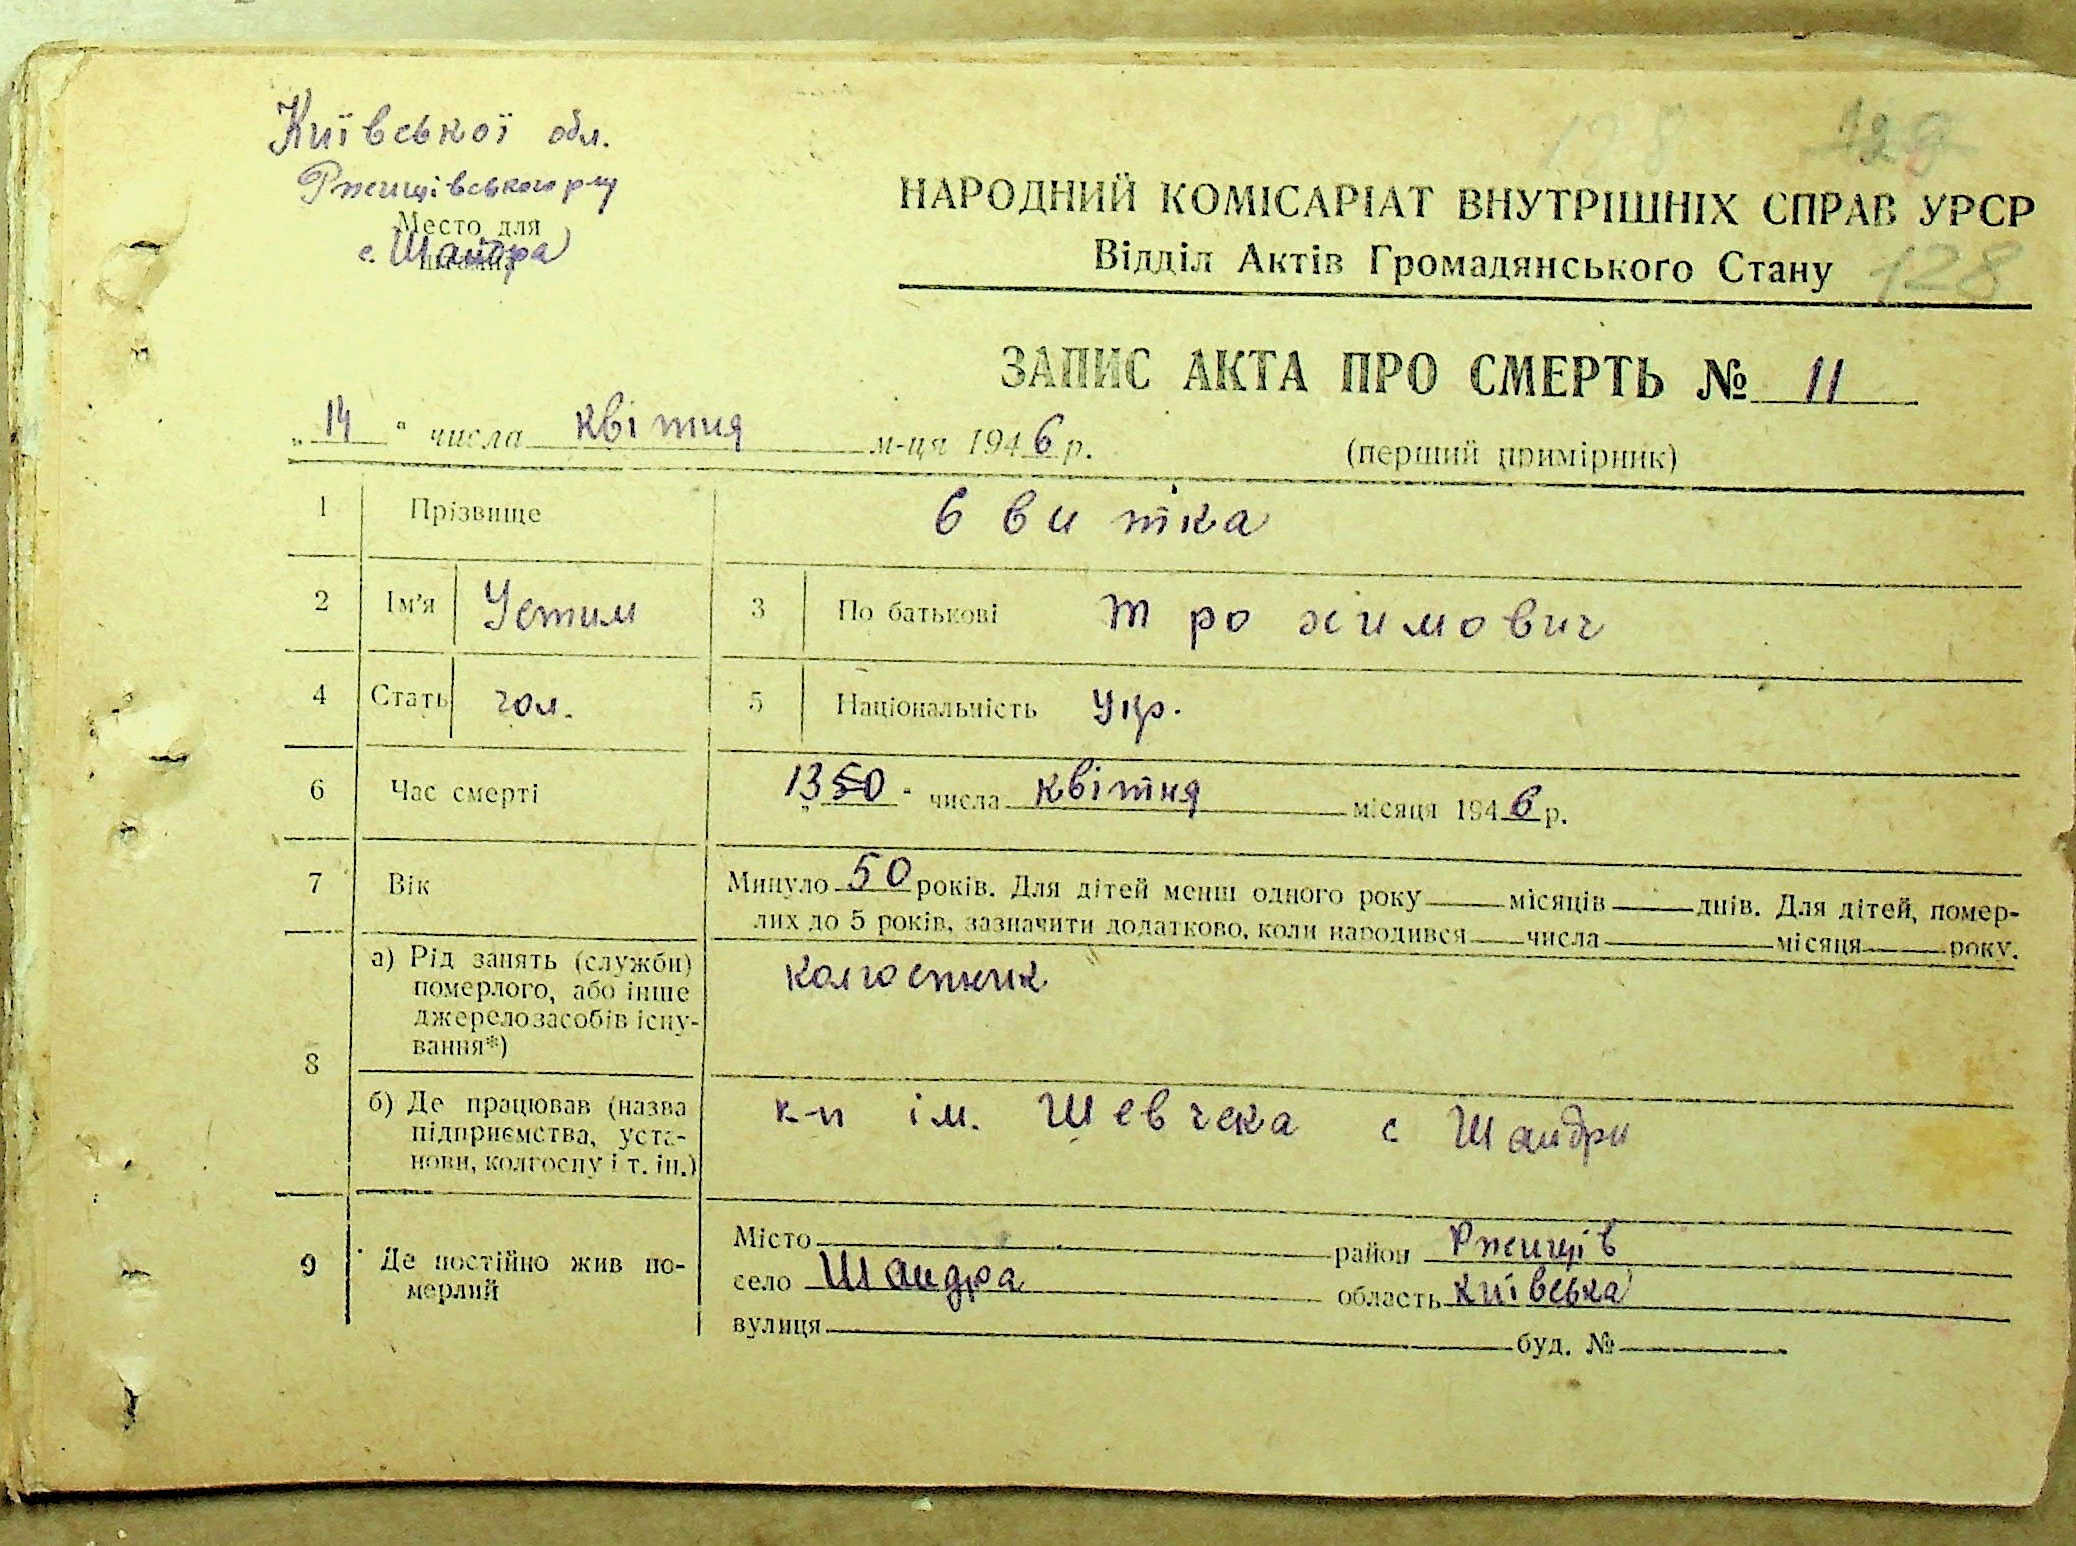 Київської обл.
Ржищівського р-ну
Место для
с. Шандра
128
НАРОДНИЙ КОМІСАРІАТ ВНУТРІШНІХ СПРАВ УРСР
Відділ Актів Громадянського Стану 128
ЗАПИС АКТА ПРО СМЕРТЬ № 11
„14“ числа квітня м-ця 1946 р.
(перший примірник)
1 Прізвище Євитка
2 Ім'я Устим 3 По батькові Трохимович
4 Стать чол. 5 Національність Укр.
6 Час смерті „13“ числа квітня місяця 1946 р.
7 Вік Минуло 50 років. Для дітей менш одного року місяців днів. Для дітей, помер-
лих до 5 років, зазначити додатково, коли народився числа місяця року.
8 а) Рід занять (служби)
померлого, або інше
джерело засобів існу-
вання*)
колгоспник
б) Де працював (назва
підприємства, уста-
нови, колгоспу і т. ін.)
к-п ім. Шевчека с Шандри
9 Де постійно жив по-
мерлий
Місто район Ржищів
село Шандра область Київська
вулиця буд. №